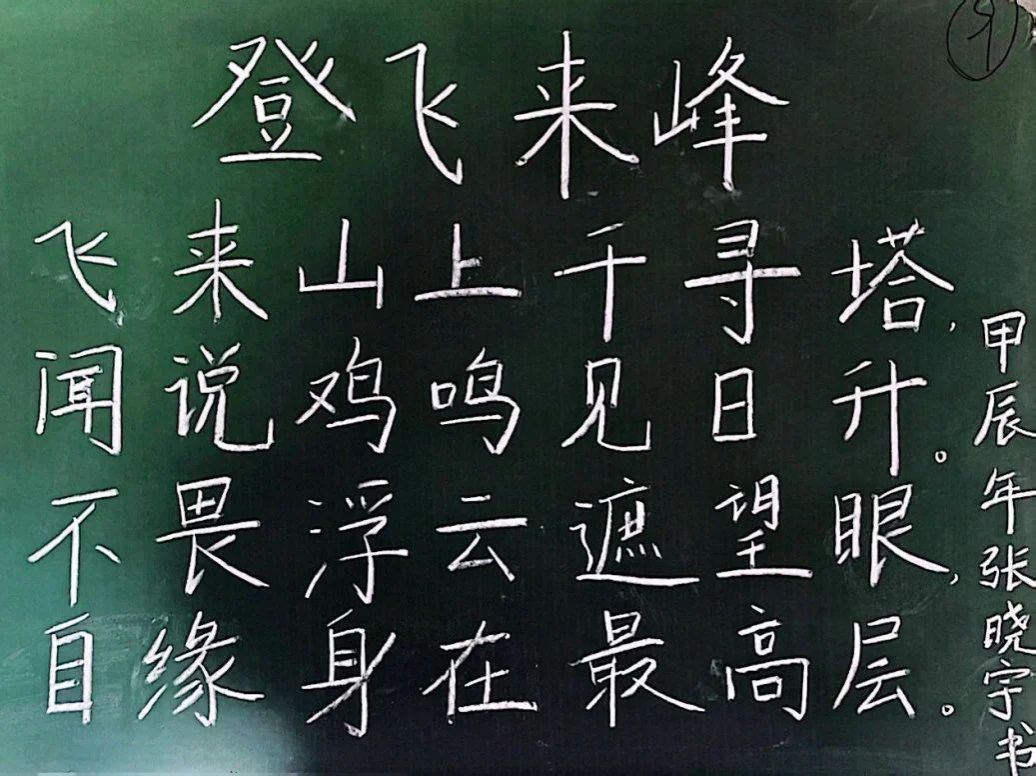 登飞来峰
飞来山上千寻塔，
闻说鸡鸣见日升。
不畏浮云遮望眼，
自缘身在最高层。
甲辰年张晓宇书